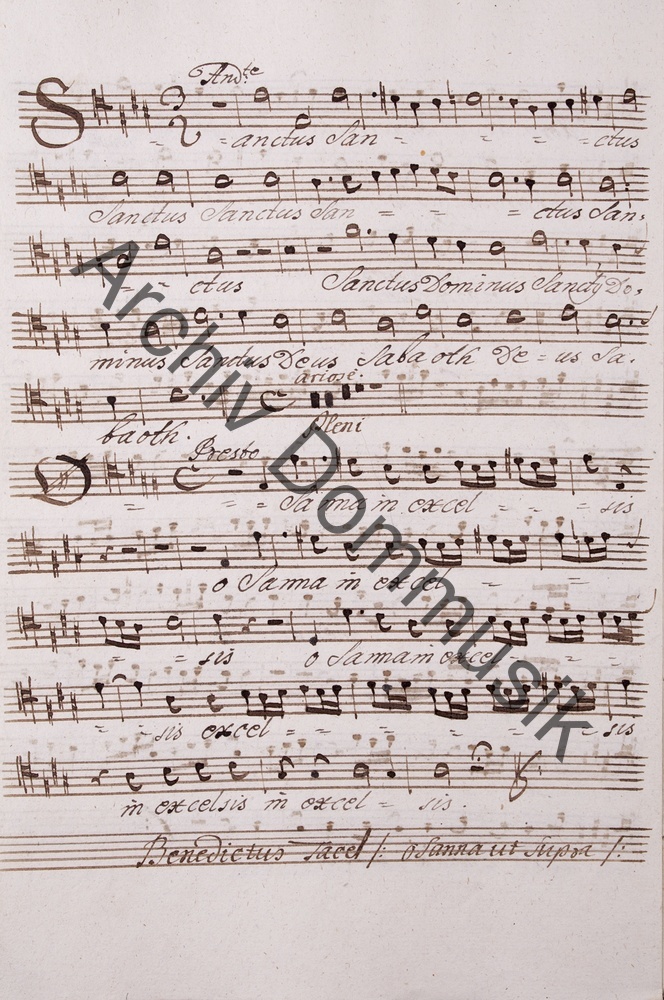 And.te
S = = anctus San = = = = ctus
Sanctus Sanctus San = = = ctus San=
= = ctus Sanctus Dominus Sanctg Do=
minus Sanctus Deus Sabaoth De = us Sa=
ariose.
baoth. Pleni
Presto
O = = = Sanna in excel = = = sis
o Sanna in excel = =
= = sis o Sanna in excel = =
= = sis excel = = = = = sis
in excelsis in excel = sis.
Benedictus tacet /: oSanna ut Supra /:
Archiv Dommusik